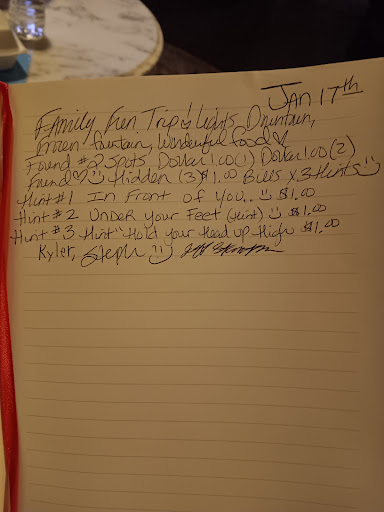 Jan 17th
Family Fun Trip! Lights Downtown,
frozen fountain, Wonderful food ♡
Found #2 Spots Dollar 1.00 (1) Dollar 1.00 (2)
Found ♡ ☺ Hidden (3) $1.00 Bills x 3 Hints ☺
Hint #1 In Front of You.. ☺ $1.00
Hint #2 Under Your Feet (Hint) ☺ $1.00
Hint #3 Hint "Hold Your Head up High $1.00
Kyler, Steph ☺